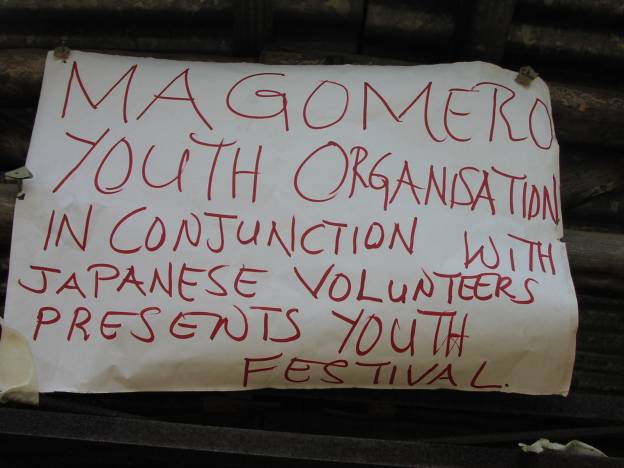 MAGOMERO
YOUTH ORGANISATION
IN CONJUNCTION WITH
JAPANESE VOLUNTEERS
PRESENTS YOUTH
FESTIVAL.